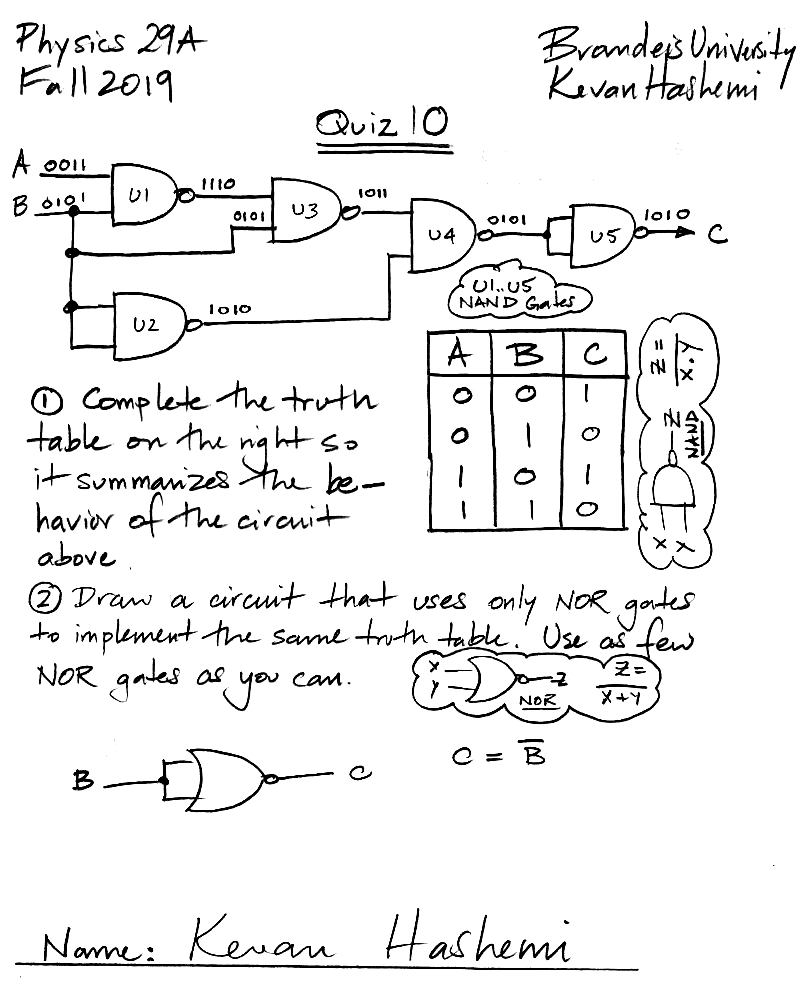 Physics 29A
Fall 2019
Brandeis University
Kevan Hashemi
Quiz 10
A 0011
B 0101
U1
1110
0101
U3
1011
U4
0101
U5
1010
C
U2
1010
U1..U5
NAND Gates
A B C
0 0 1
0 1 0
1 0 1
1 1 0
Z =
X.Y
Z
NAND
X Y
① Complete the truth
table on the right so
it summarizes the be-
havior of the circuit
above.
② Draw a circuit that uses only NOR gates
to implement the same truth table. Use as few
NOR gates as you can.
X
Y
Z
NOR
Z=
X+Y
B C
C = B̅
Name: Kevan Hashemi